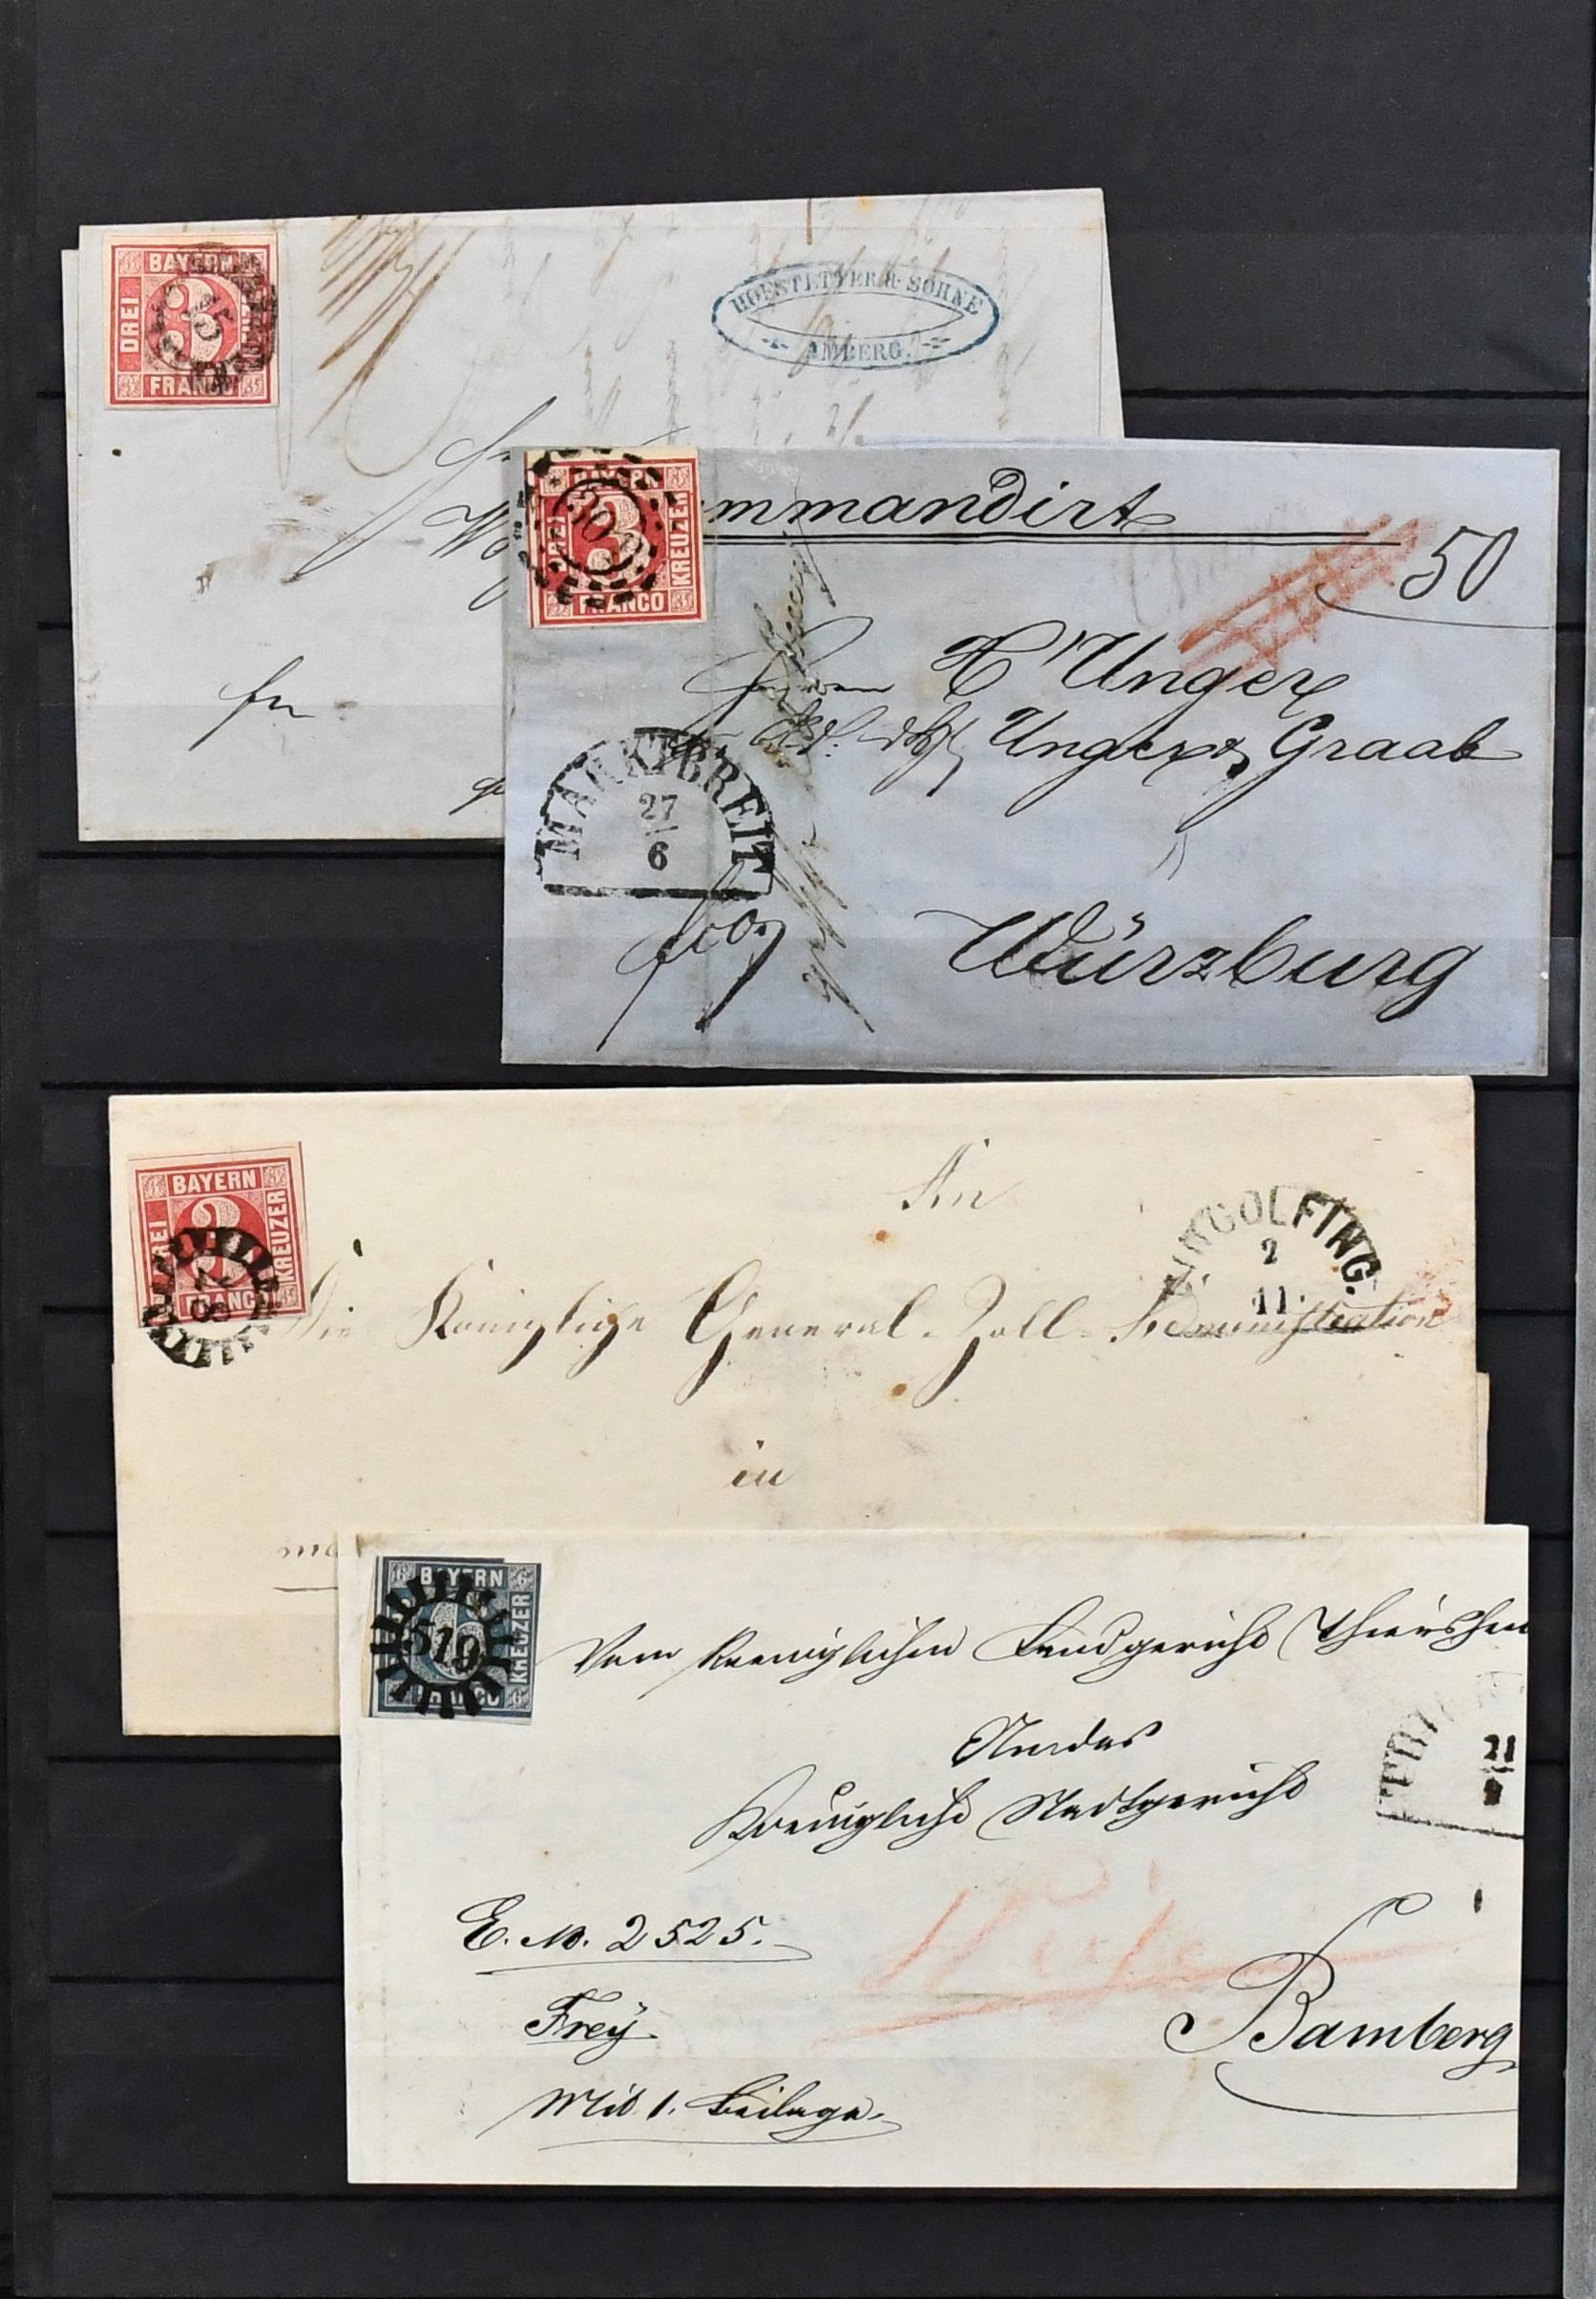 BAYERN
DREI
FRANCO
HOFSTETTER & SÖHNE
AMBERG.
BAYERN
DREI
KREUZER
FRANCO
mmandirt
50
Herrn H Unger
Unger & Graab
MARKTBREIT
27
6
Würzburg
BAYERN
DREI
KREUZER
FRANCO
An
DINGOLFING.
2
11.
Die Königliche General-Zoll-Administration
in
BAYERN
KREUZER
FRANCO
6
519
Vom Koeniglichen Landgericht Thiershe
An das
Koenigliche Stadtgericht
21
9
E. No. 2525.
Frey.
Bamberg
Mit 1. Beilage.